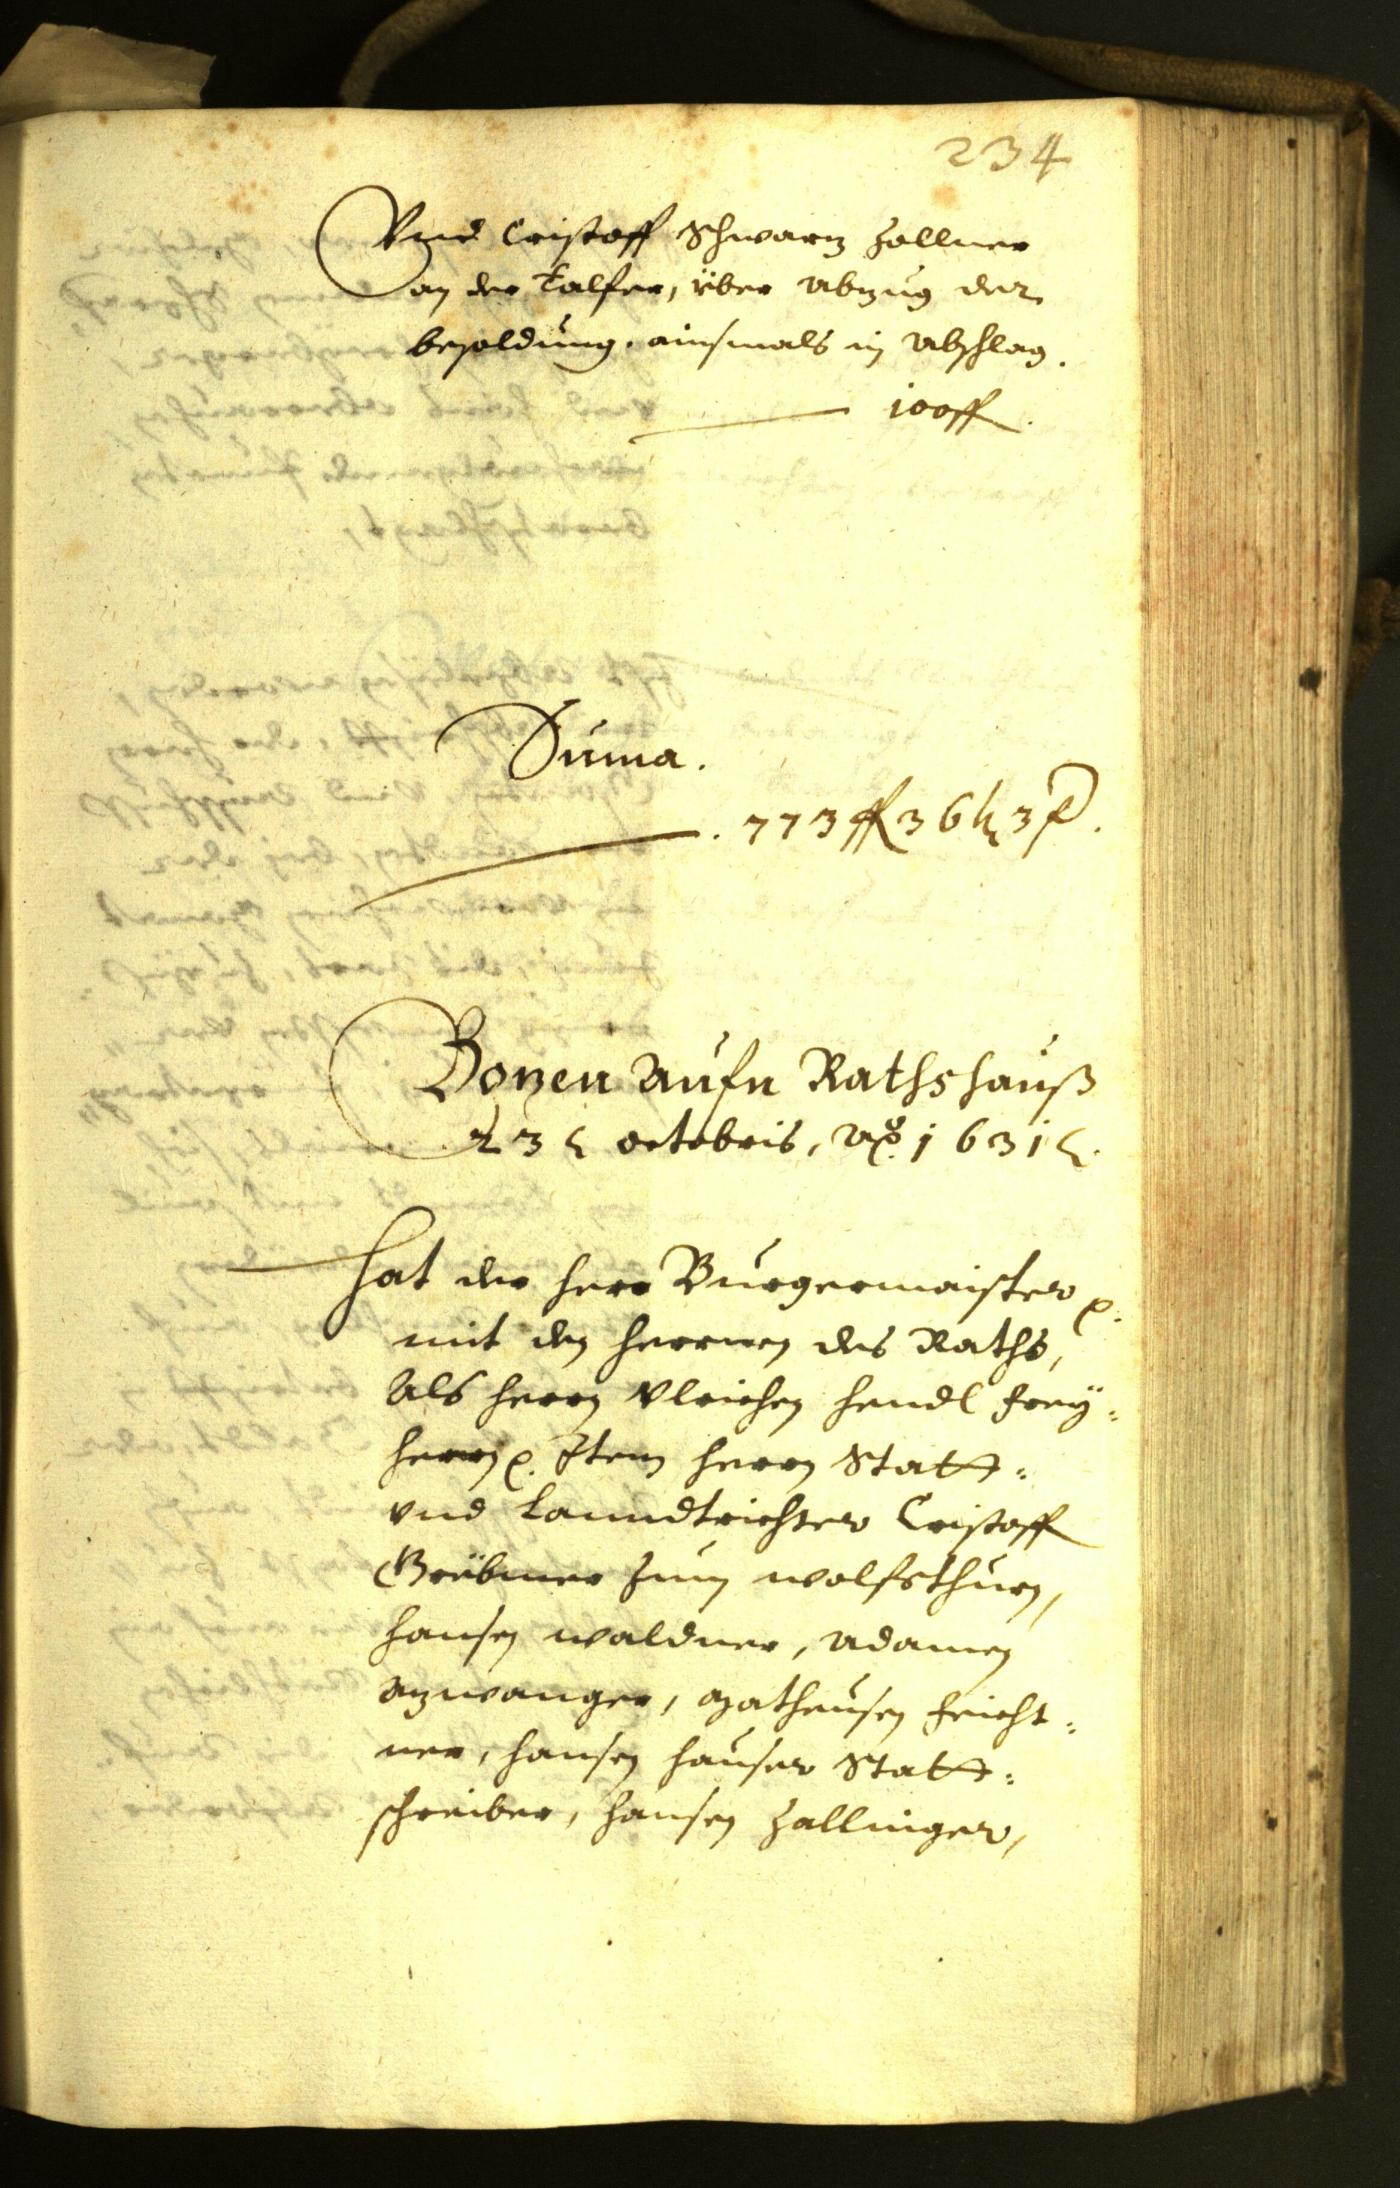 234
Vnd Cristoff Schwarz Zollner
an der Talfer, über Abzug der
besoldung. ainsmals in Abschlag.
100 ff.
Suma.
. 773 ff 36 k 3 f.
Bozen Aufn Rathshauß
23 octobris, Ao. 1631.
Hat der herr Burgermaister
mit den herrnen des Raths,
Als herrn Vlrichen Hendl Frey=
herrn Item herrn Statt=
vnd Lanndtrichter Cristoff
Grëbmer zum wolfsthurn,
Hansen waldner, Adamen
Azwanger, Matheusen Feicht=
ner, Hansen Hauser Statt=
schreiber, Hansen Zallinger,